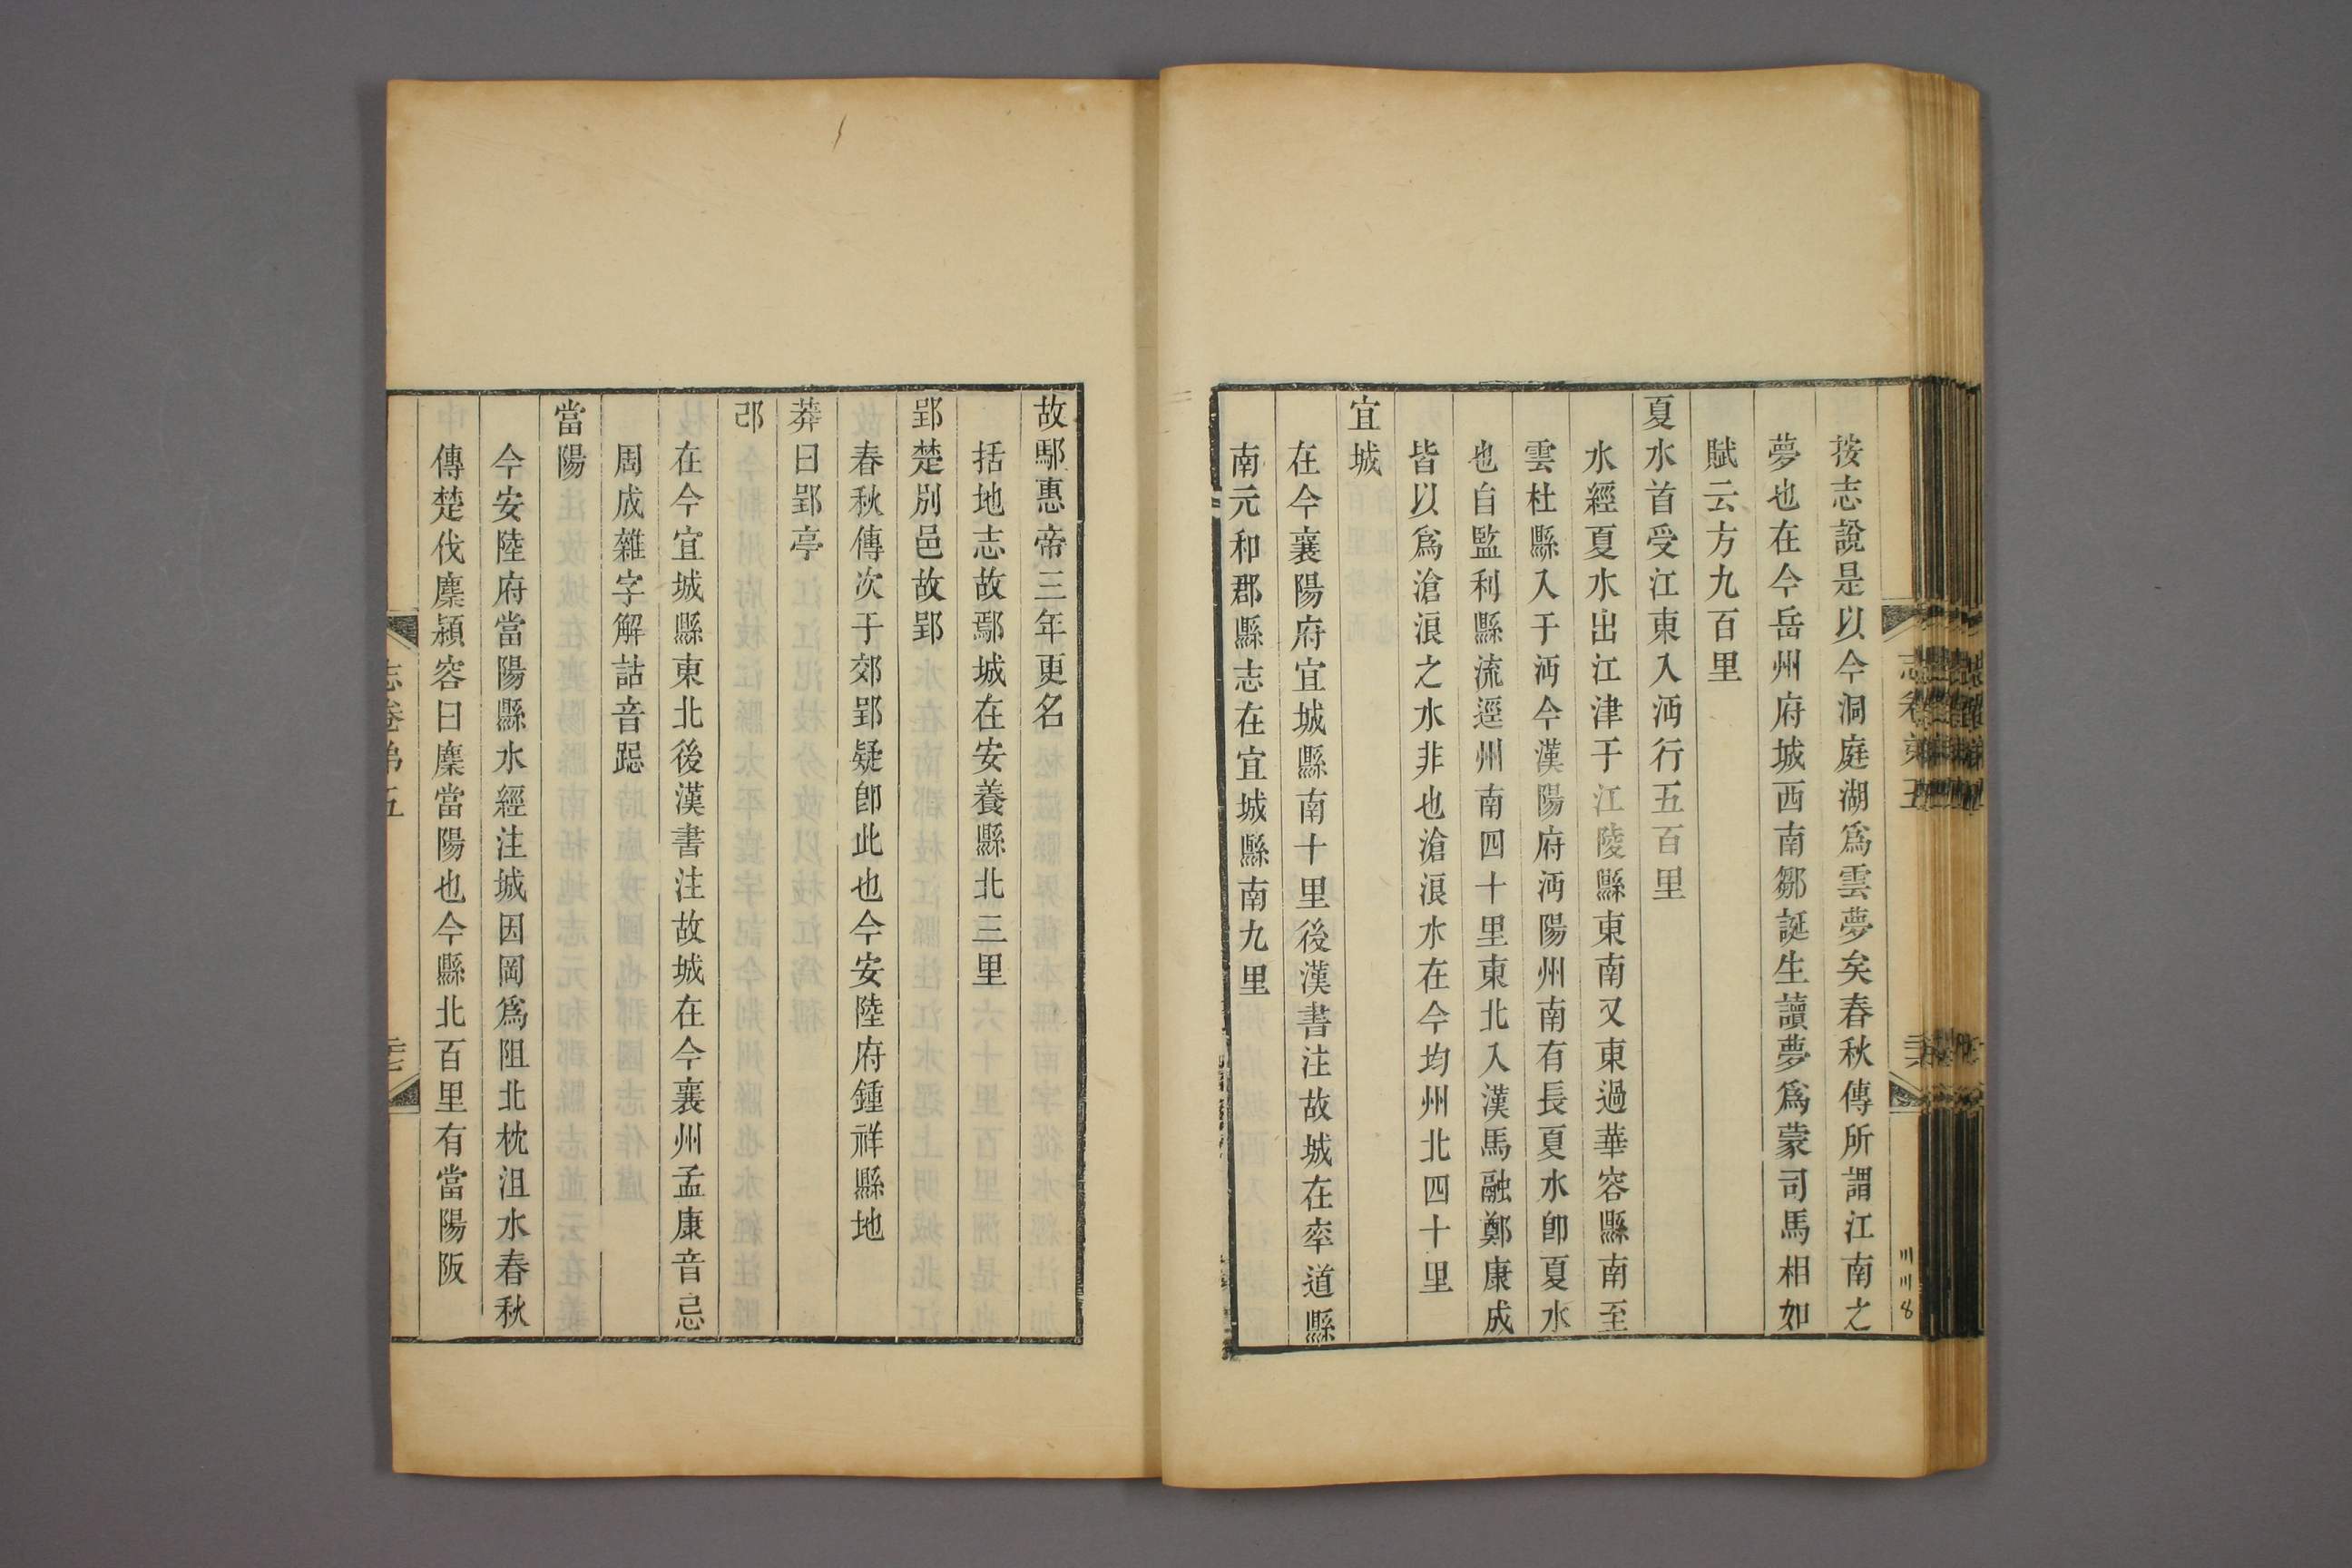 按志說是以今洞庭湖爲雲夢矣春秋傳所謂江南之
夢也在今岳州府城西南鄒誕生讀夢爲蒙司馬相如
賦云方九百里
夏水首受江東入沔行五百里
水經夏水出江津于江陵縣東南又東過華容縣南至
雲杜縣入于沔今漢陽府沔陽州南有長夏水卽夏水
也自監利縣流逕州南四十里東北入漢馬融鄭康成
皆以爲滄浪之水非也滄浪水在今均州北四十里
宜城
在今襄陽府宜城縣南十里後漢書注故城在率道縣
南元和郡縣志在宜城縣南九里
故鄢惠帝三年更名
括地志故鄢城在安養縣北三里
郢楚別邑故郢
春秋傳次于郊郢疑卽此也今安陸府鍾祥縣地
莽曰郢亭
邔
在今宜城縣東北後漢書注故城在今襄州孟康音忌
周成雜字解詁音跽
當陽
今安陸府當陽縣水經注城因岡爲阻北枕沮水春秋
傳楚伐麇潁容曰麇當陽也今縣北百里有當陽阪
志卷弟五